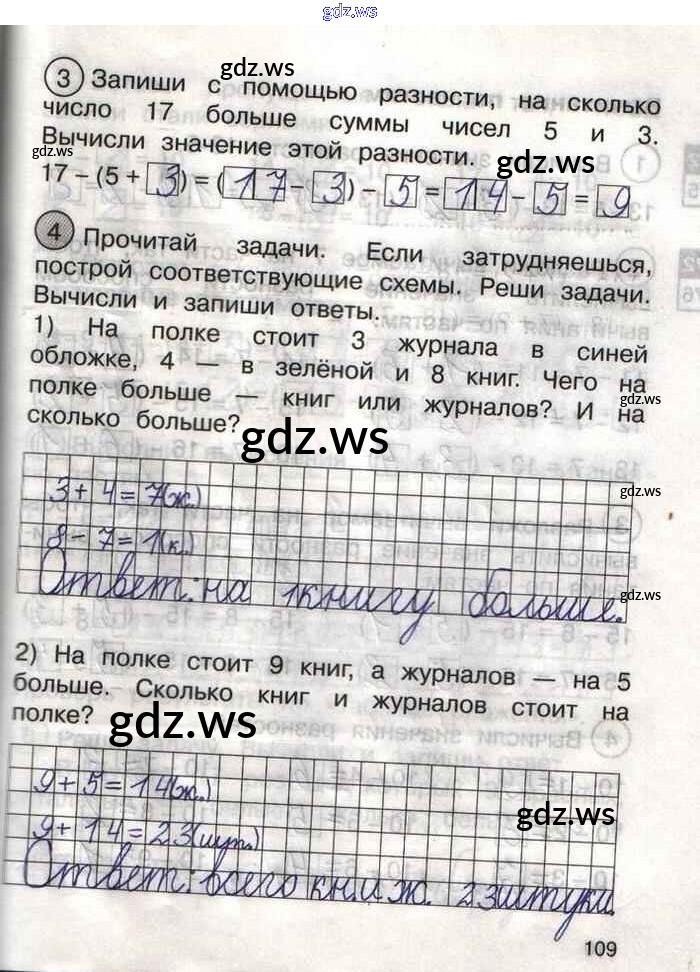 gdz.ws
3 Запиши с помощью разности, на сколько
gdz.ws
число 17 больше суммы чисел 5 и 3.
Вычисли значение этой разности.
gdz.ws
gdz.ws
17 – (5 + 3) = (17 – 3) – 5 = 14 – 5 = 9
4 Прочитай задачи. Если затрудняешься,
построй соответствующие схемы. Реши задачи.
Вычисли и запиши ответы.
1) На полке стоит 3 журнала в синей
обложке, 4 — в зелёной и 8 книг. Чего на
полке больше — книг или журналов? И на
gdz.ws
сколько больше?
gdz.ws
3 + 4 = 7(ж.)
gdz.ws
8 – 7 = 1(к.)
Ответ: на 1 книгу больше.
gdz.ws
2) На полке стоит 9 книг, а журналов — на 5
больше. Сколько книг и журналов стоит на
полке?
gdz.ws
9 + 5 = 14(ж.)
gdz.ws
9 + 14 = 23(шт.)
Ответ: всего кн. и ж. 23 штуки.
109